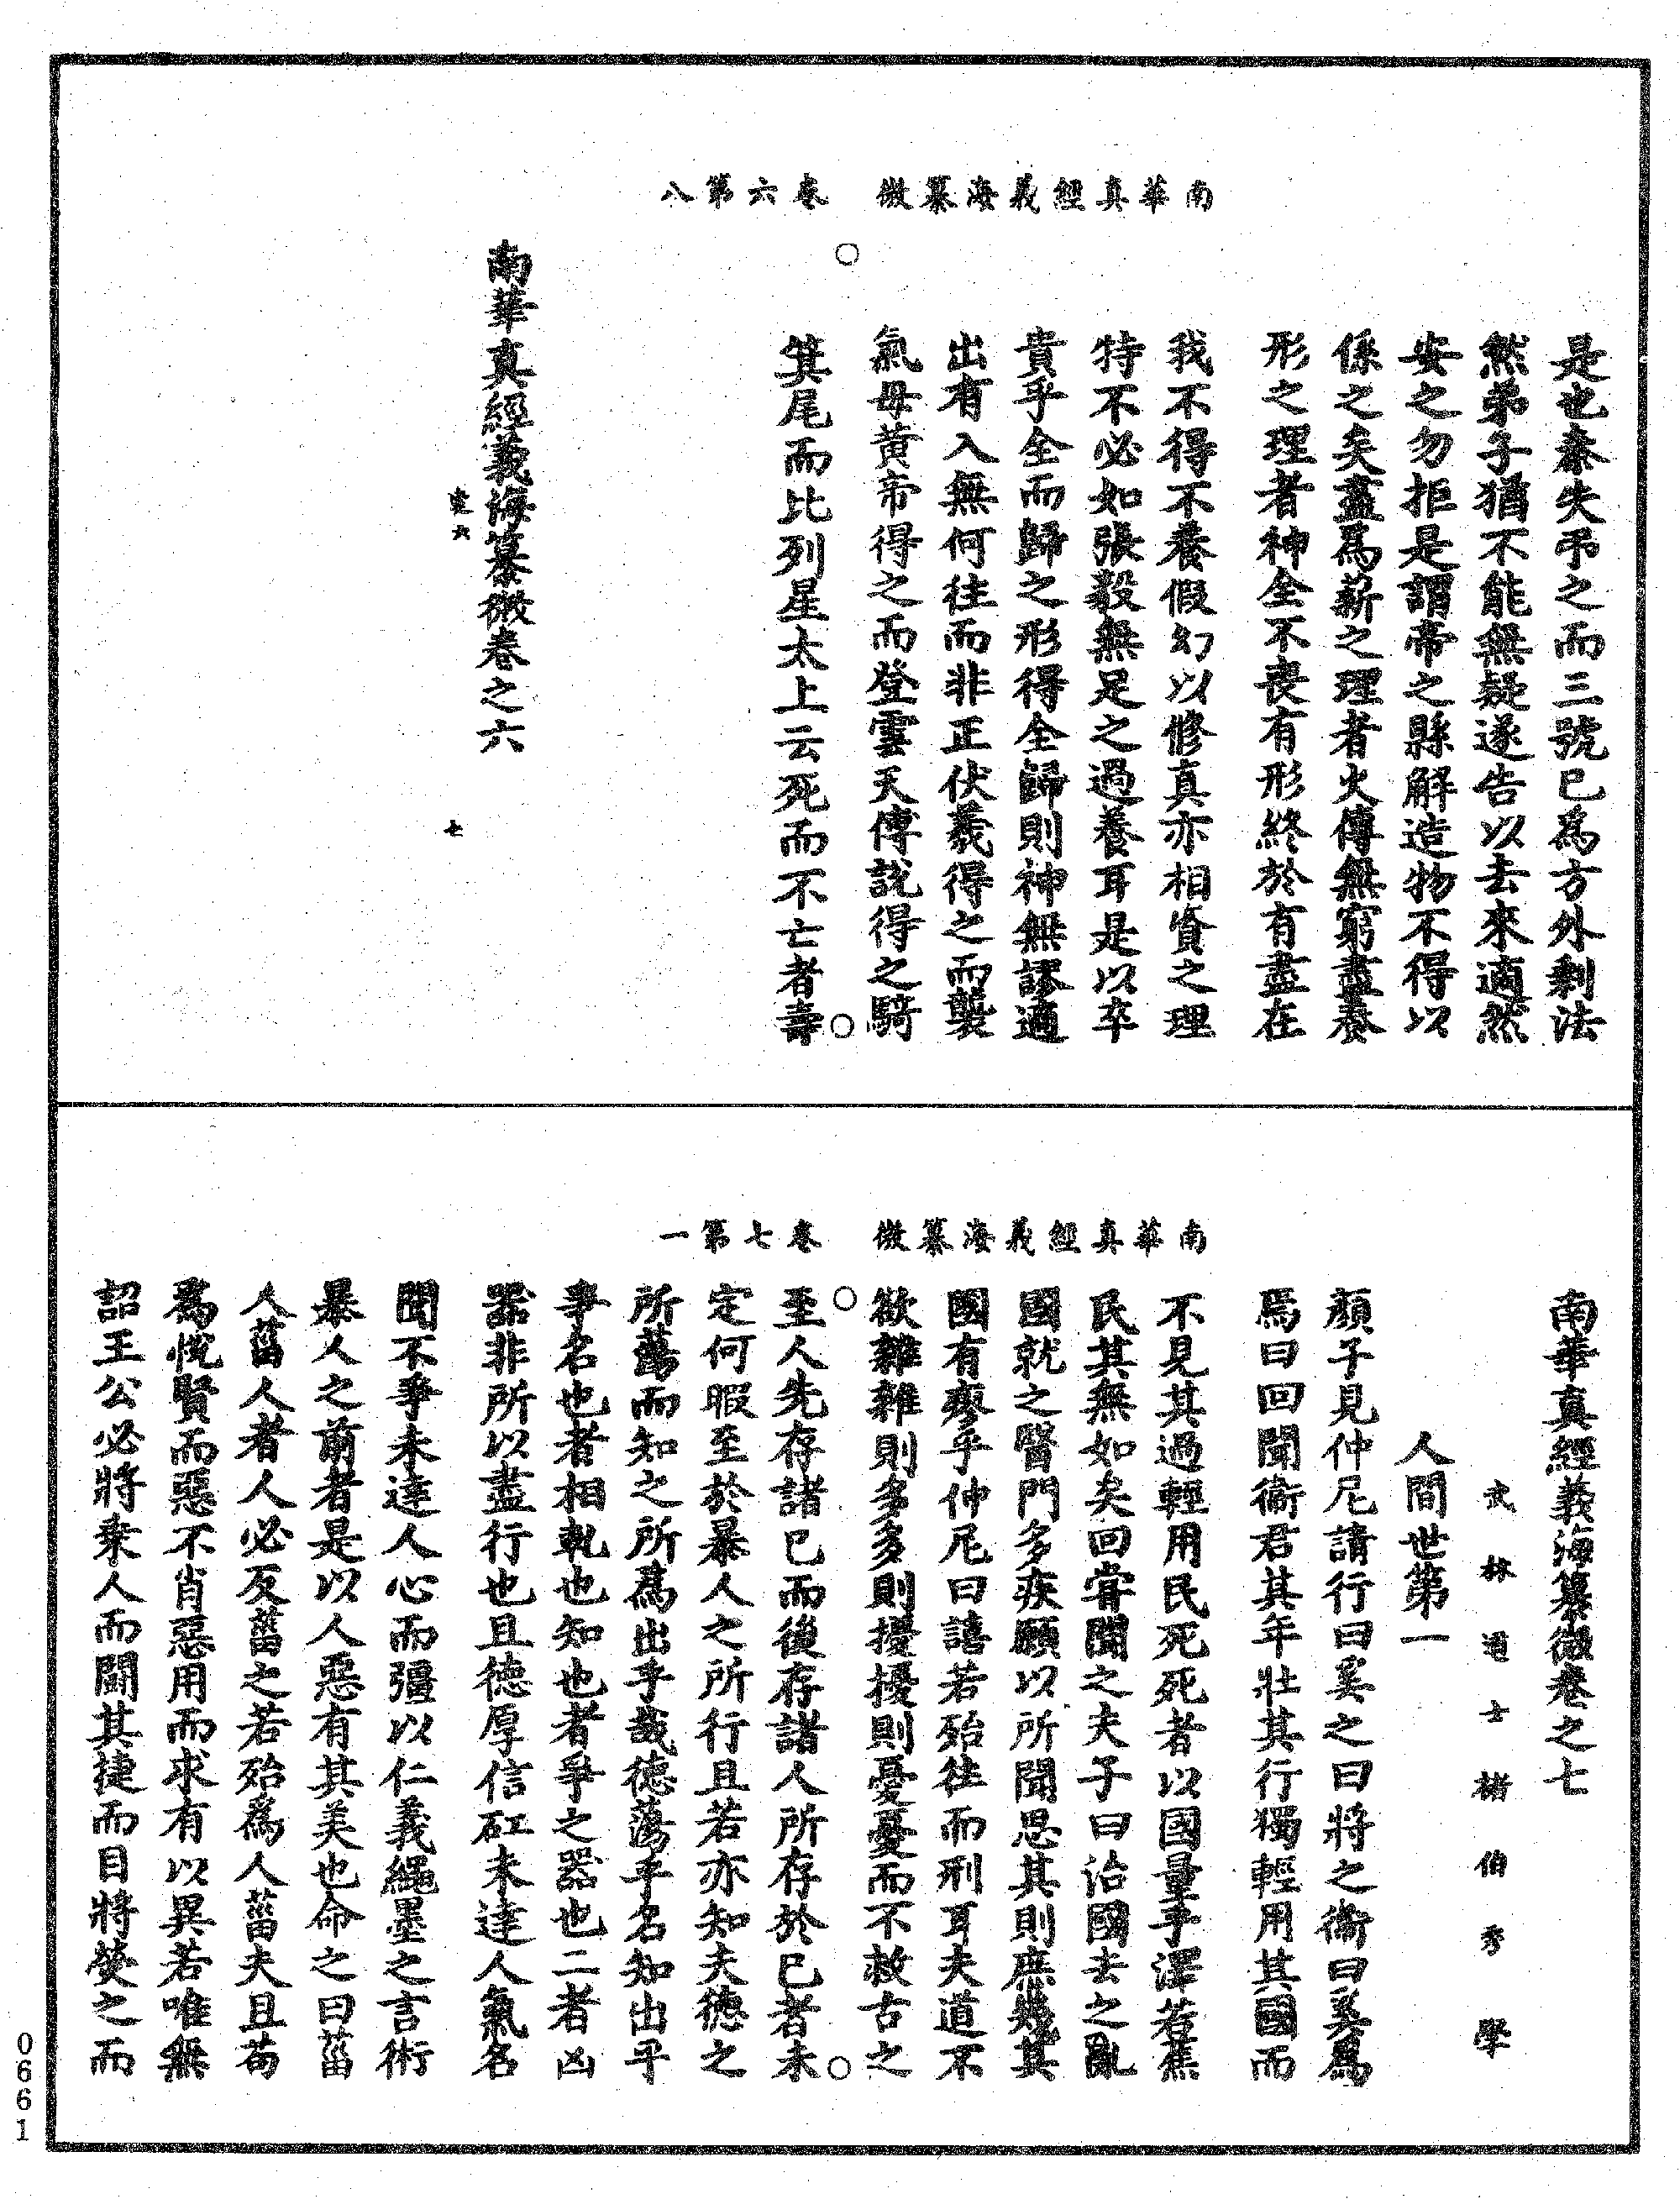 南華真經義海纂微　卷六第八
是也秦失弔之而三號已為方外剩法
然弟子猶不能無疑遂告以去來適然
安之勿拒是謂帝之縣解造物不得以
係之矣盡為薪之理者火傳無窮盡養
形之理者神全不喪有形終於有盡在
我不得不養假幻以修真亦相資之理
特不必如張毅無足之過養耳是以卒
貴乎全而歸之形得全歸則神無謬適
出有入無何往而非正伏羲得之而襲
氣母黃帝得之而登雲天傅說得之騎
箕尾而比列星太上云死而不亡者壽
南華真經義海纂微卷之六
七
南華真經義海纂微　卷七第一
南華真經義海纂微卷之七
武林道士褚伯秀學
人間世第一
顏子見仲尼請行曰奚之曰將之衞曰奚為
焉曰回聞衞君其年壯其行獨輕用其國而
不見其過輕用民死死者以國量乎澤若蕉
民其無如矣回嘗聞之夫子曰治國去之亂
國就之醫門多疾願以所聞思其則庶幾其
國有瘳乎仲尼曰譆若殆往而刑耳夫道不
欲雜雜則多多則擾擾則憂憂而不救古之
至人先存諸已而後存諸人所存於已者未
定何暇至於暴人之所行且若亦知夫德之
所蕩而知之所為出乎哉德蕩乎名知出乎
爭名也者相軋也知也者爭之器也二者凶
器非所以盡行也且德厚信矼未達人氣名
聞不爭未達人心而彊以仁義繩墨之言術
暴人之前者是以人惡有其美也命之曰菑
人菑人者人必反菑之若殆為人菑夫且苟
為悅賢而惡不肖惡用而求有以異若唯無
詔王公必將乘人而鬭其捷而目將熒之而
0661